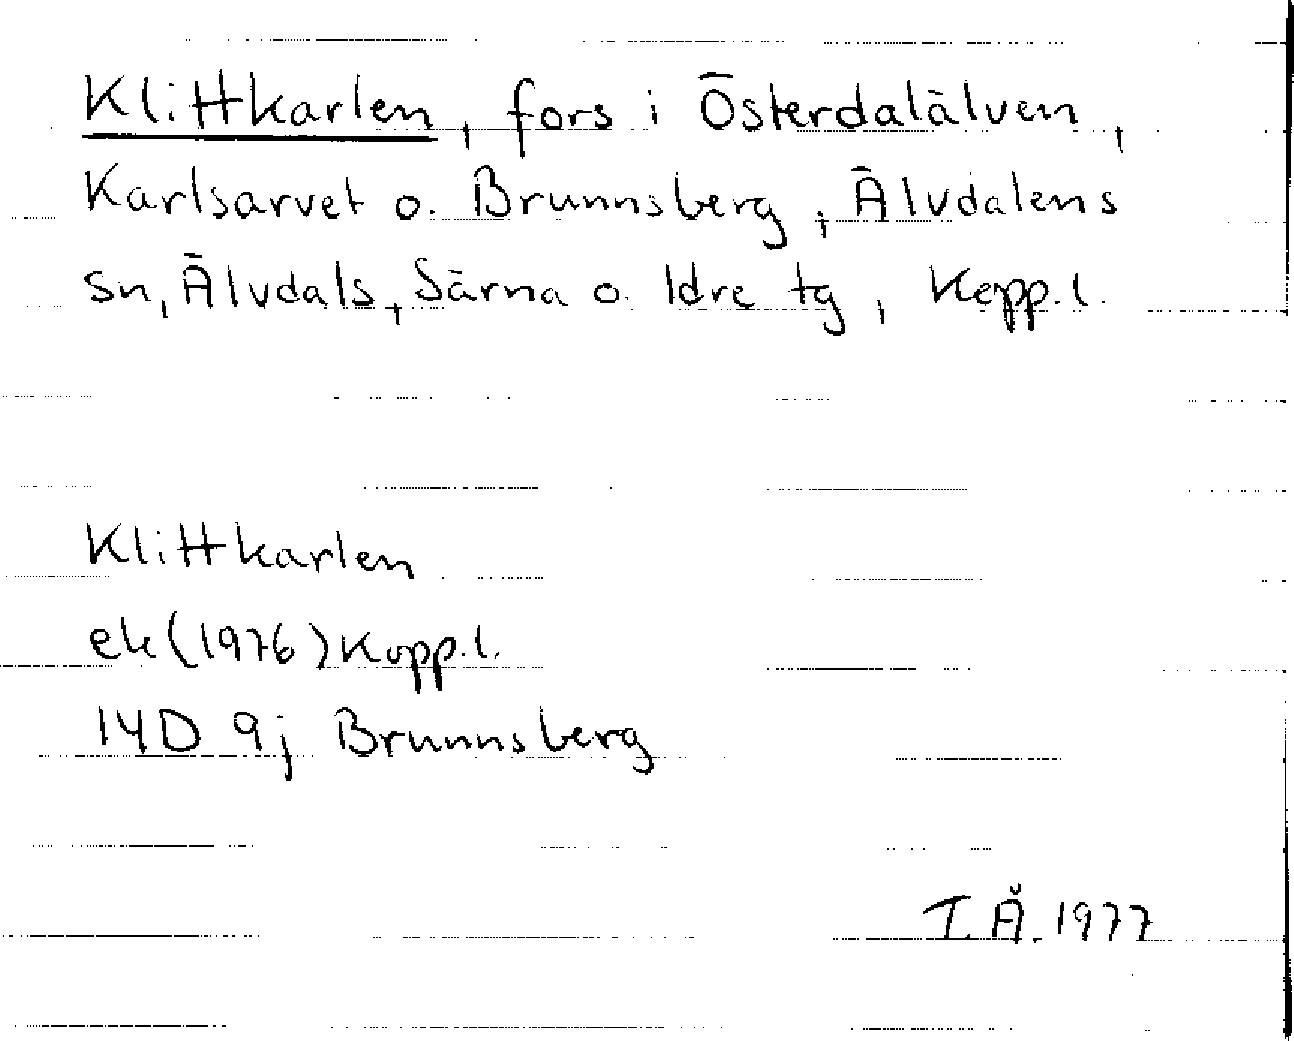 Klittkarlen, fors i Österdalälven,
Karlsarvet o. Brunnsberg, Älvdalens
sn, Älvdals, Särna o. Idre tg, Kopp.l.
Klittkarlen
ek (1976) Kopp.l.
14D 9j Brunnsberg
I.Å. 1977